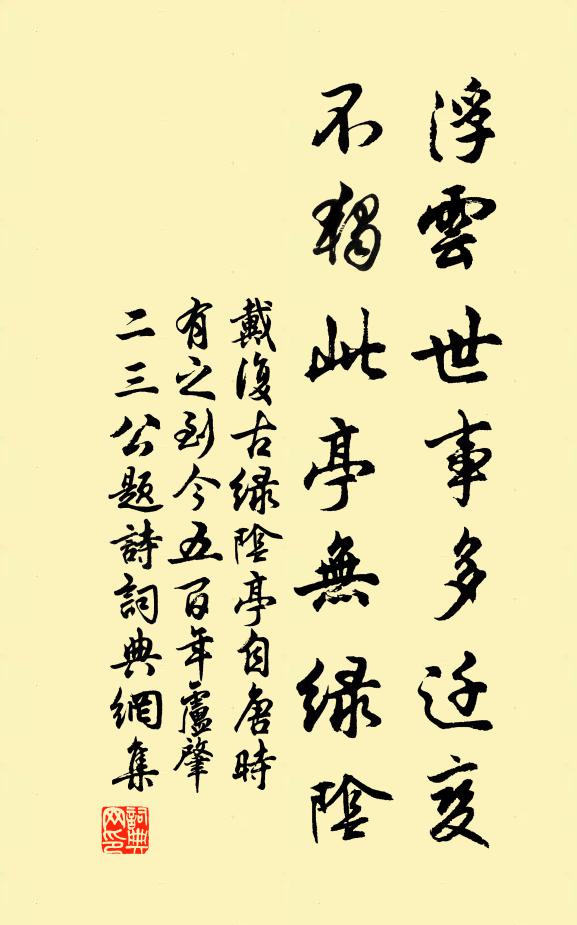 浮雲世事多迁变
不独此亭無緑陰
戴復古緑陰亭自唐時
有之到今五百年盧肇
二三公題詩詞典網集
詞典
网印